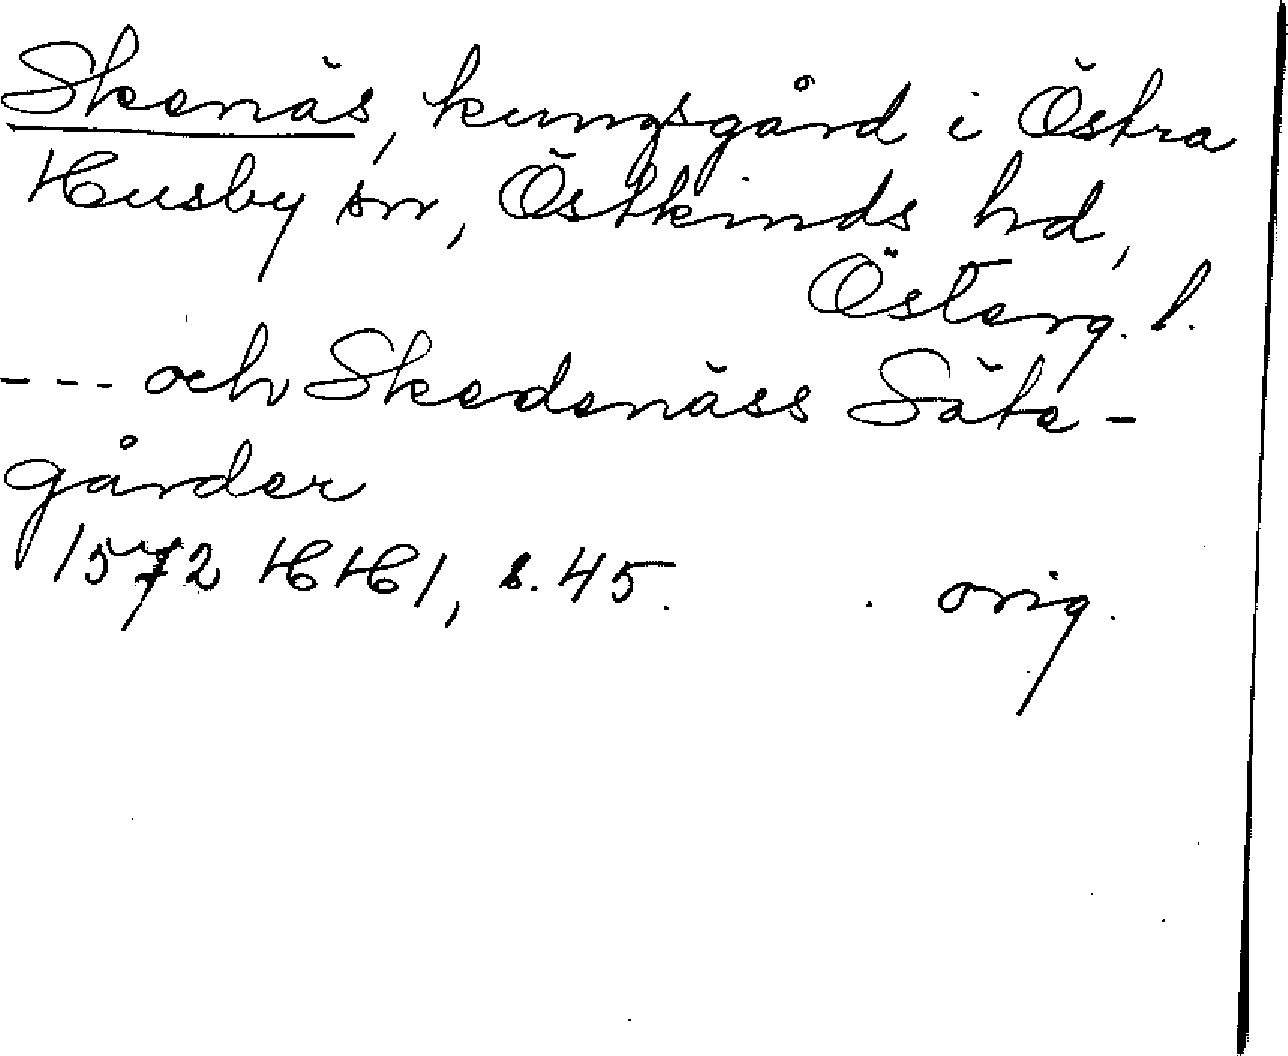 Skenäs, kungsgård i Östra
Husby sn, Östkinds hd,
Österg. l.
--- och Skedenäss Säte-
gårder
1572 HH1, s. 45. orig.